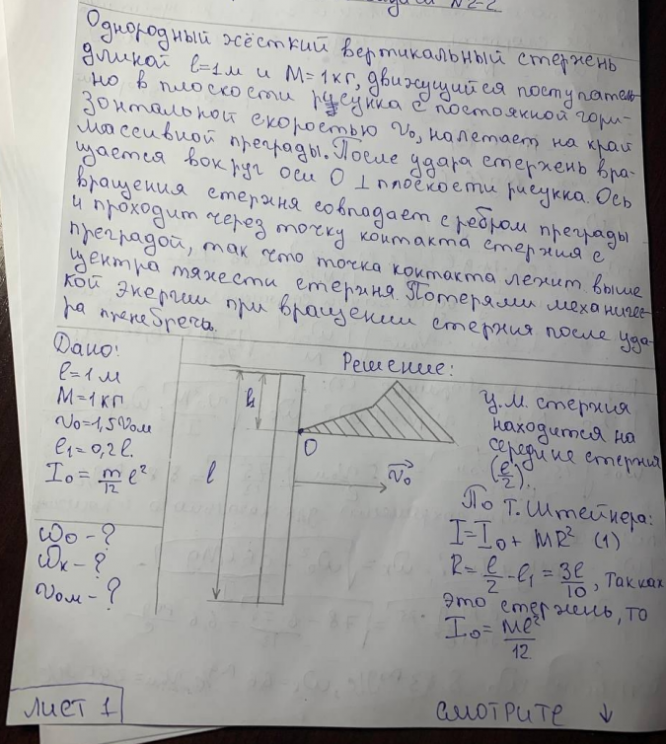 N2-2
Однородный жёсткий вертикальный стержень
длиной l=1м и M=1кг, движущийся поступатель-
но в плоскости рисунка с постоянной гори-
зонтальной скоростью v₀, налетает на край
массивной преграды. После удара стержень вра-
щается вокруг оси O ⊥ плоскости рисунка. Ось
вращения стержня совпадает с ребром преграды
и проходит через точку контакта стержня с
преградой, так что точка контакта лежит выше
центра тяжести стержня. Потерями механичес-
кой энергии при вращении стержня после уда-
ра пренебречь.
Дано:
l=1м
M=1кг
v₀=1,5v₀м
l₁=0,2l.
I₀=m/12 l²
ω₀-?
ωк-?
v₀м-?
Решение:
l₁
l
O
v₀
Ц.м. стержня
находится на
середине стержня
(l/2).
По т. Штейнера:
I=I₀+MR² (1)
R=l/2-l₁=3l/10, так как
это стержень, то
I₀=Ml²/12
лист 1
смотрите ↓